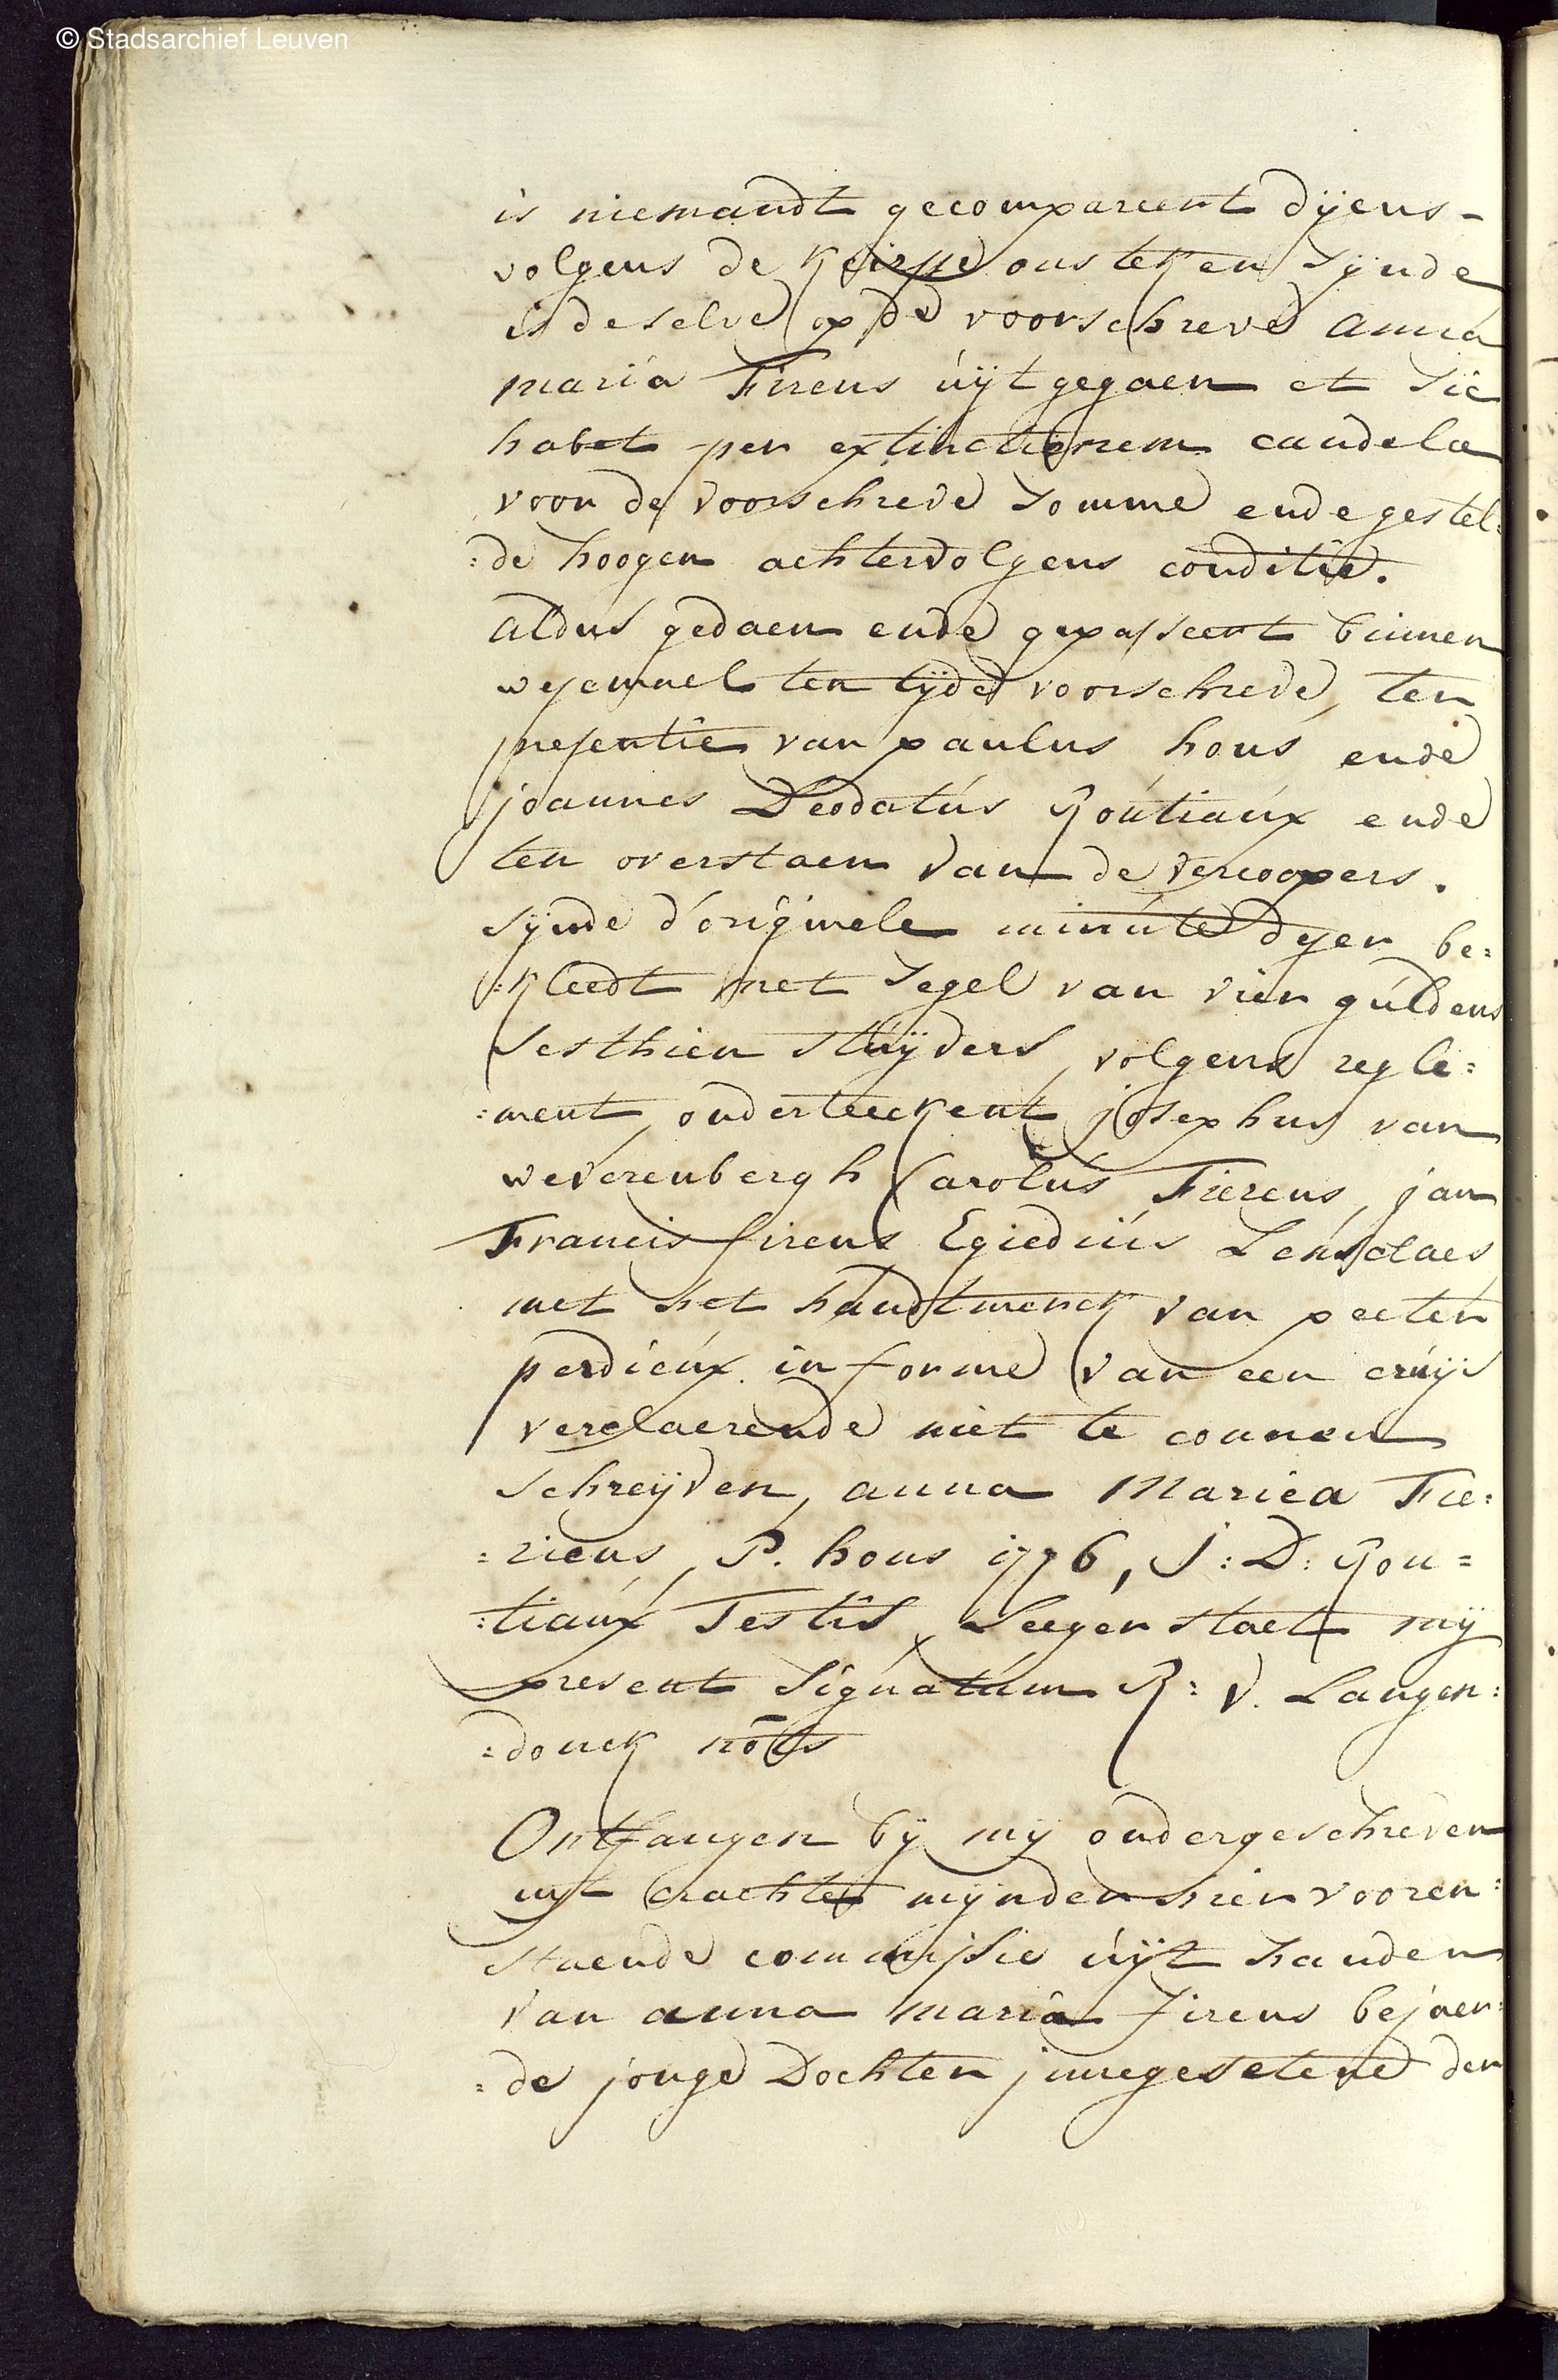 © Stadsarchief Leuven
is niemandt gecompareert dÿens-
volgens de Keirsse onsteken sÿnde
is de selve op de voorschreve anna
maria Firens úÿtgegaen et sic
habet per extinctionem candelæ
voor de voorschreve somme ende gestel:
:de hoogen achtervolgens conditie.
aldus gedaen ende gepasseert binnen
wesemael ten tÿde voorschreve, ten
presentie van paulus hous ende
joannes Deodatús Roútiaúx ende
ten overstaen van de vercoopers.
sÿnde d'originele minúte dÿer be:
:kleedt met segel van vier gúldens
sesthien stúÿvers, volgens regle:
:ment, onderteeckent josephus van
weverenbergh Carolús Fierens, jan
Francis firens Egiediús Lensclaes
met het handtmerck van peeter
perdieúx in forme van een crúÿs
verclaerende niet te connen
schreÿven, anna Mariea Fie:
:riens, P. hous 1776, J: D: Rou=
:tiaúx Testis, Leeger staet mÿ
present Signatúm R: V. Langen:
:donck nots
Ontfangen bÿ mÿ ondergeschreven
uyt crachte mÿnder hier vooren:
staende commissie úÿt handen
van anna maria firens bejaer:
:de jonge Dochter jnnegesetene der